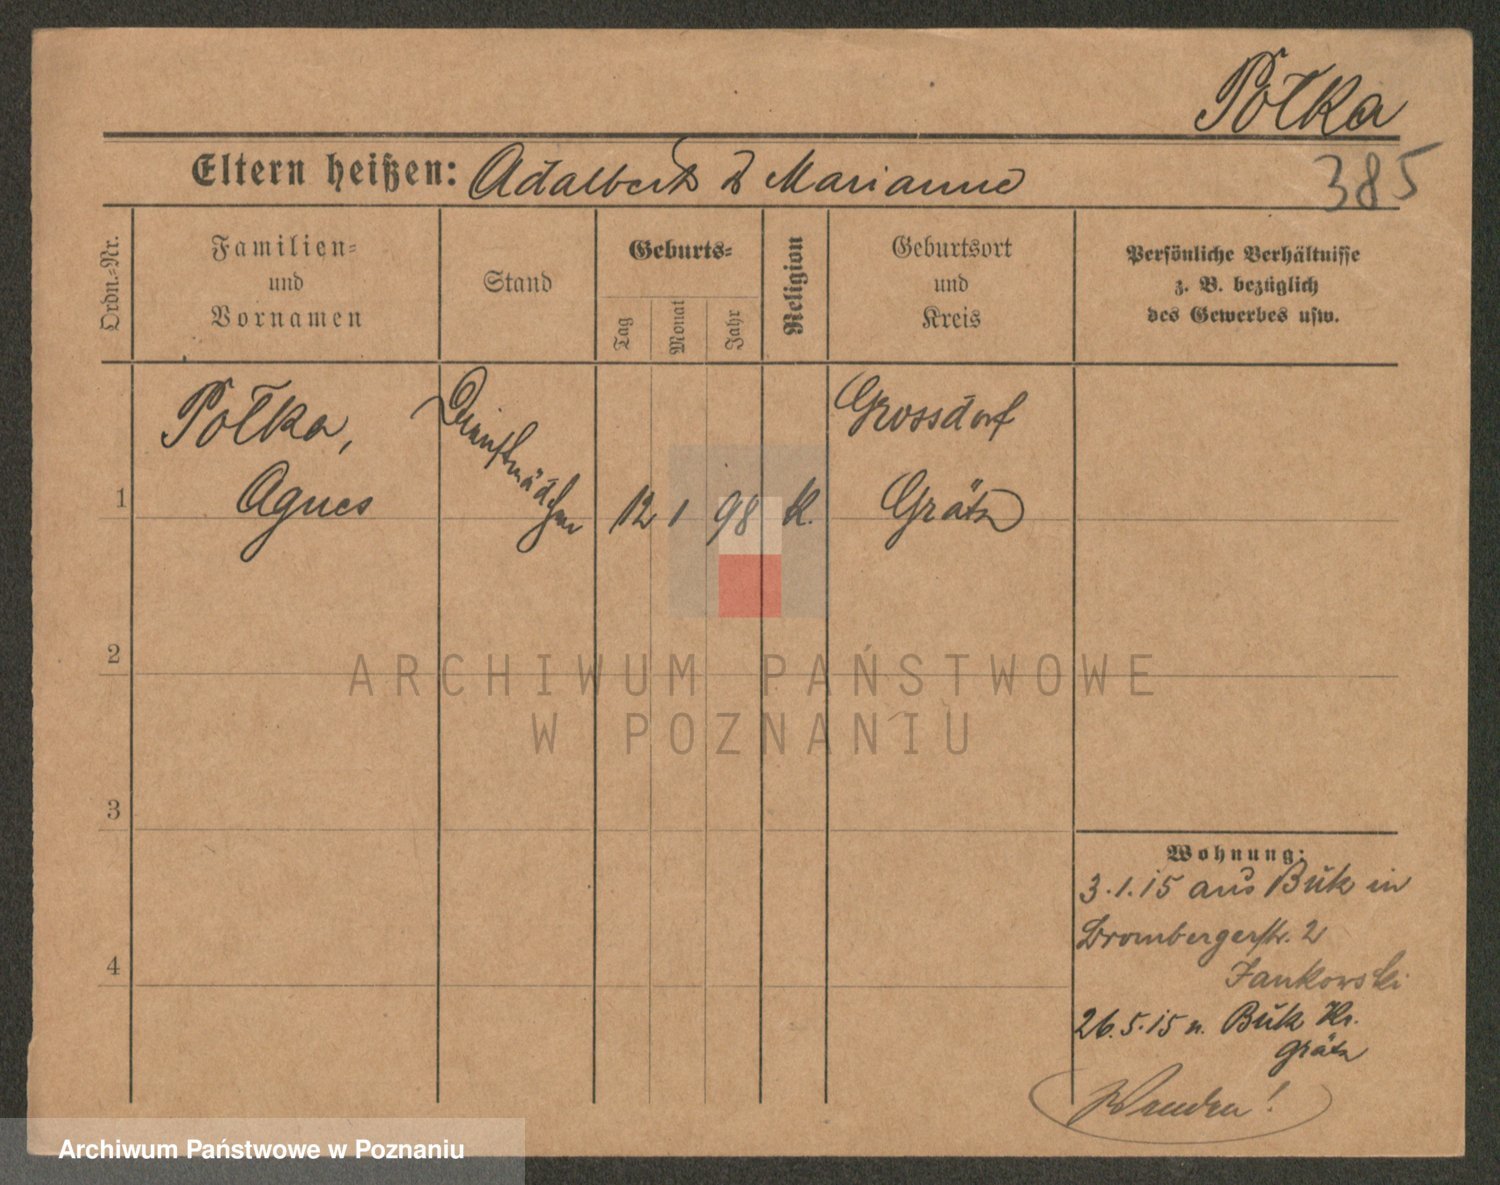 Połka
Eltern heißen: Adalbert & Marianne
385
Ordn.-Nr.
Familien-
und
Vornamen
Stand
Geburts-
Tag
Monat
Jahr
Religion
Geburtsort
und
Kreis
Persönliche Verhältnisse
z. B. bezüglich
des Gewerbes usw.
1
Połka,
Agnes
Dienstmädchen
12 1 98 K.
Grossdorf
Grätz
2
3
4
Wohnung:
3.1.15 aus Buk in
Brombergerstr. 2
Jankowski
26.5.15 n. Buk Kr.
Grätz
Wenden!
ARCHIWUM PAŃSTWOWE
W POZNANIU
Archiwum Państwowe w Poznaniu